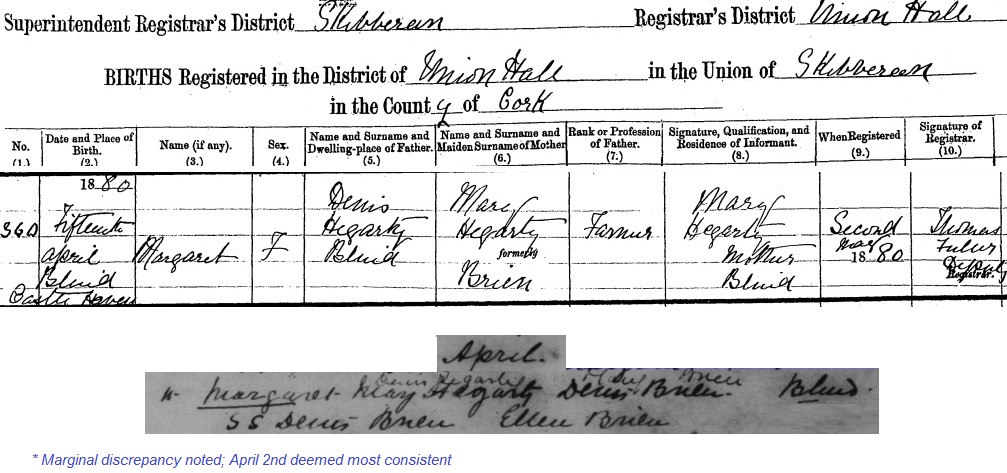 Superintendent Registrar's District Skibbereen Registrar's District Union Hall
BIRTHS Registered in the District of Union Hall in the Union of Skibbereen
in the County of Cork
No. (1.) Date and Place of Birth. (2.) Name (if any). (3.) Sex. (4.) Name and Surname and Dwelling-place of Father. (5.) Name and Surname and Maiden Surname of Mother (6.) Rank or Profession of Father. (7.) Signature, Qualification, and Residence of Informant. (8.) When Registered (9.) Signature of Registrar. (10.)
1880 Denis Mary Mary
360 Fifteenth Hegarty Hegarty Farmer Hegarty Second Thomas
April Margaret F Bluid formerly Mother May 1880 Fuller
Bluid Brien Bluid Deputy Registrar.
Castle Haven
April.
" Margaret Denis Hegarty Mary Hegarty Denis Brien Brien Bluid.
SS Denis Brien Ellen Brien
* Marginal discrepancy noted; April 2nd deemed most consistent